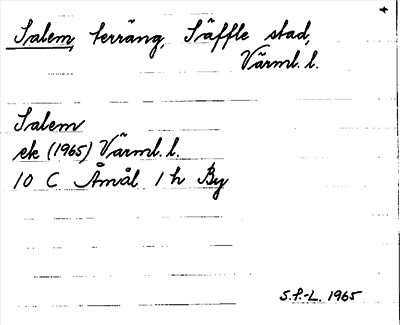 Salem, terräng, Säffle stad,
Värml. l.
Salem
ek (1965) Värml. l.
10 C Åmål 1 h By
S.P.-L. 1965